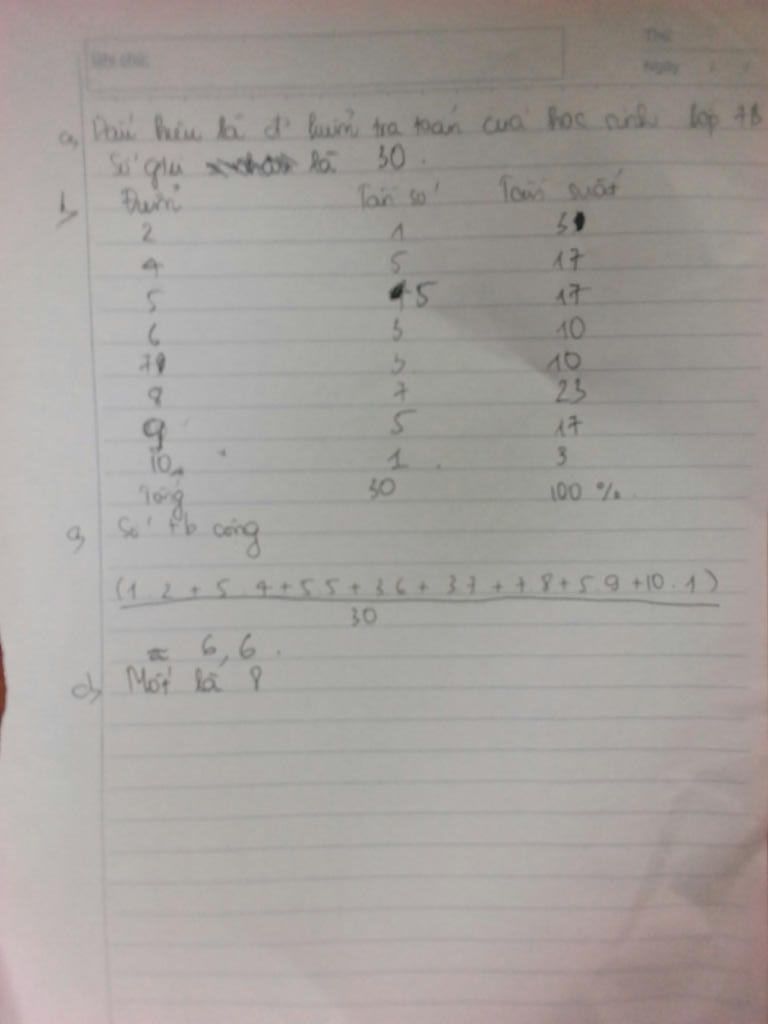 Ghi chú:
Thứ:
Ngày: / /
a, Dấu hiệu là đ' kiểm tra toán của học sinh lớp 7B
Số giị là 30.
b, Điểm Tần số Tần suất
2 1 3
4 5 17
5 5 17
6 3 10
7 3 10
8 7 23
9 5 17
10 1 3
Tổng 30 100 %.
c, Số tb cộng
(1.2 + 5.4 + 5.5 + 3.6 + 3.7 + 7.8 + 5.9 + 10.1)
30
= 6,6.
d, Mốt là 8